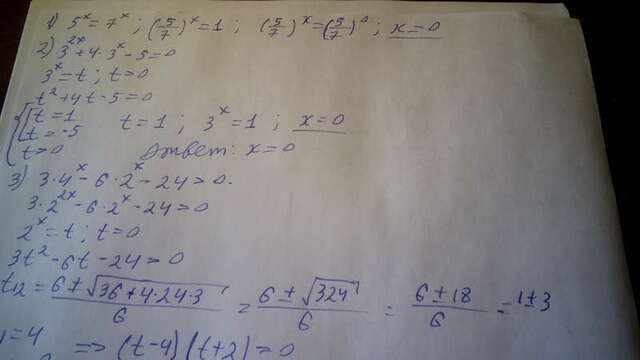 1) 5^x = 7^x ; (5/7)^x = 1 ; (5/7)^x = (5/7)^0 ; x = 0
2) 3^2x + 4·3^x - 5 = 0
3^x = t ; t > 0
t^2 + 4t - 5 = 0
{ [ t = 1
t = -5
t > 0
t = 1 ; 3^x = 1 ; x = 0
Ответ: x = 0
3) 3·4^x - 6·2^x - 24 > 0.
3·2^2x - 6·2^x - 24 > 0
2^x = t ; t > 0
3t^2 - 6t - 24 > 0
t12 = (6 ± √(36 + 4·24·3))/6 = (6 ± √324)/6 = (6 ± 18)/6 = 1 ± 3
= 4 => (t-4)(t+2) > 0